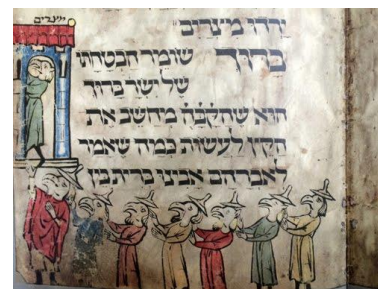 מצרים
ירדו מיצרים
ברוך שומר הבטחתו
לישר ברוך
הוא שהקבה מחשב את
הקץ לעשות כמה שאמר
לאברהם אבינו ברית בין